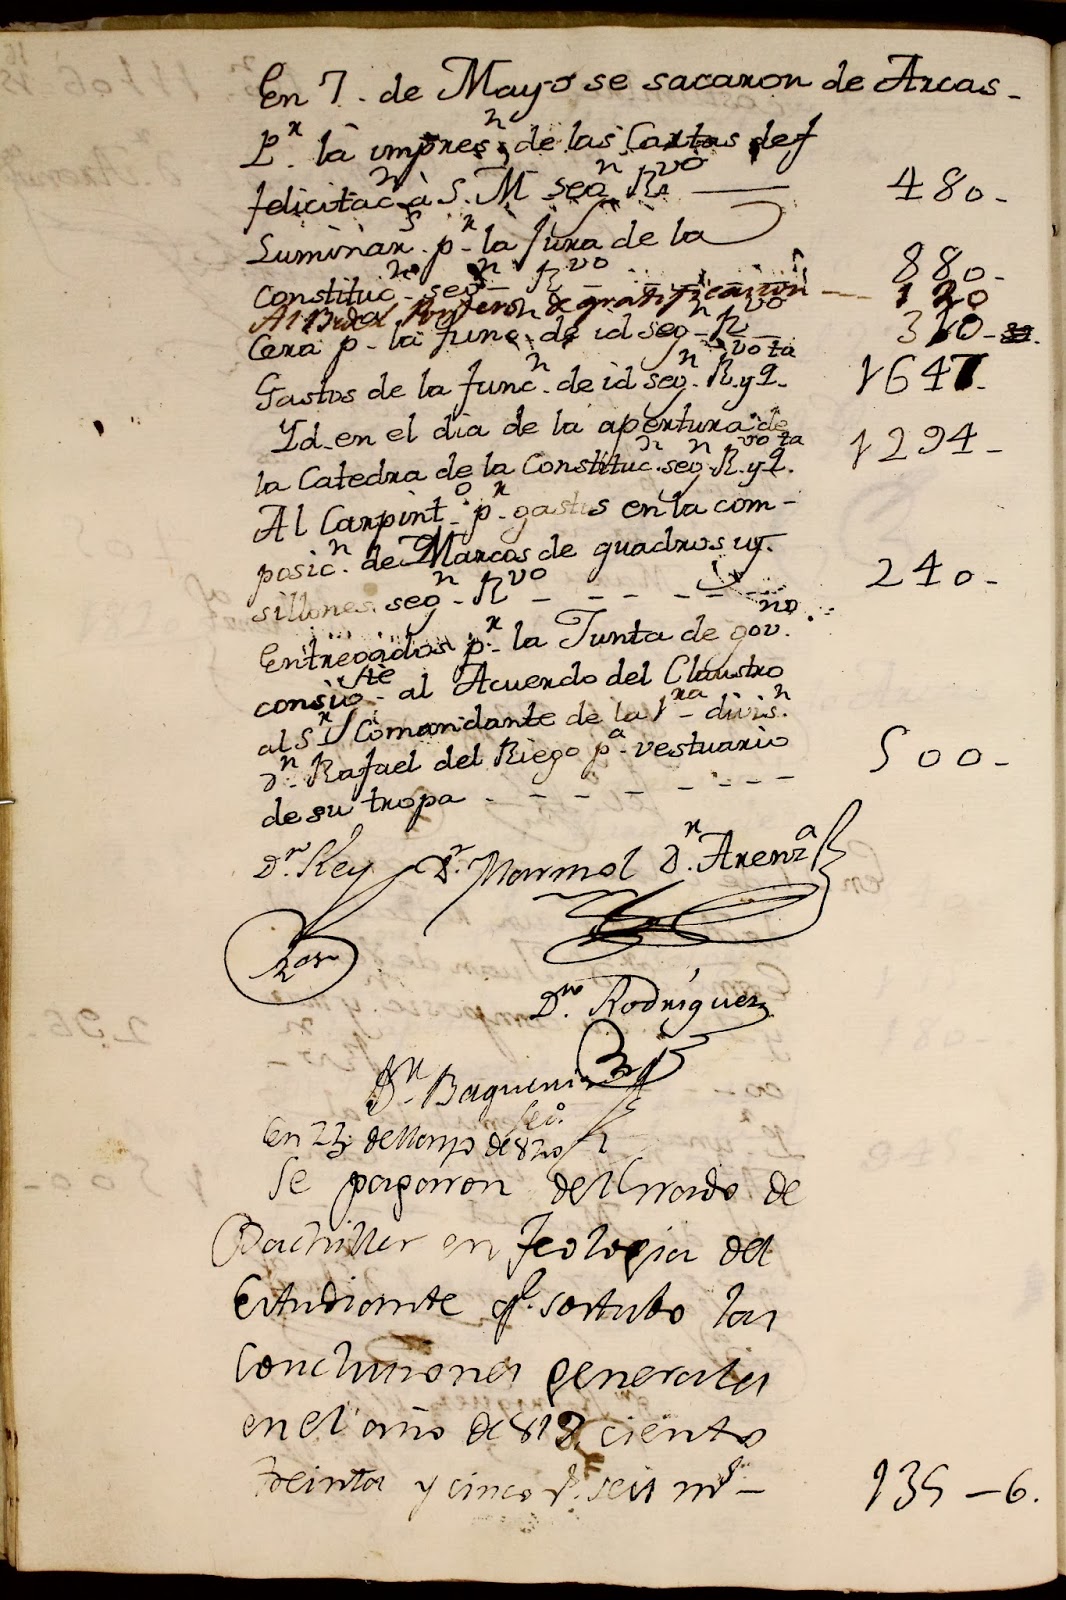 En 7. de Mayo se sacaron de Arcas
Pr. la impresn. de las Cartas de
felicitacn. à S. M segn. Rvo 480
Luminars. pr. la Jura de la
Constitucn. segn. Rvo 880
Al Bidel Portero de gratificacion 120
Cera p. la func. de id seg. Rvo 310
Gastos de la funcn. de id segn. Rvo y Qta 1647
Id. en el dia de la apertura de
la Catedra de la Constitucn. segn. Rvo y Qta. 1294
Al Carpinto. pr. gastos en la com-
posicn. de Marcos de quadros y
sillones segn. Rvo 240
Entregados pr. la Junta de govno.
consigte. al Acuerdo del Claustro
al Sr. Comandante de la 1ra. divisn.
Dn. Rafael del Riego pa. vestuario
de su tropa 500
Dr. Rey Dr. Marmol Dr. Arenza
Dr. Rodriguez
Dn. Baquerizo
Sro.
En 23 de Marzo de 820
Se pagaron del Grado de
Bachiller en Teologia del
Estudiante q. sostubo las
Conclusiones generales
en el año de 818. ciento
treinta y cinco rs. seis ms 135-6.